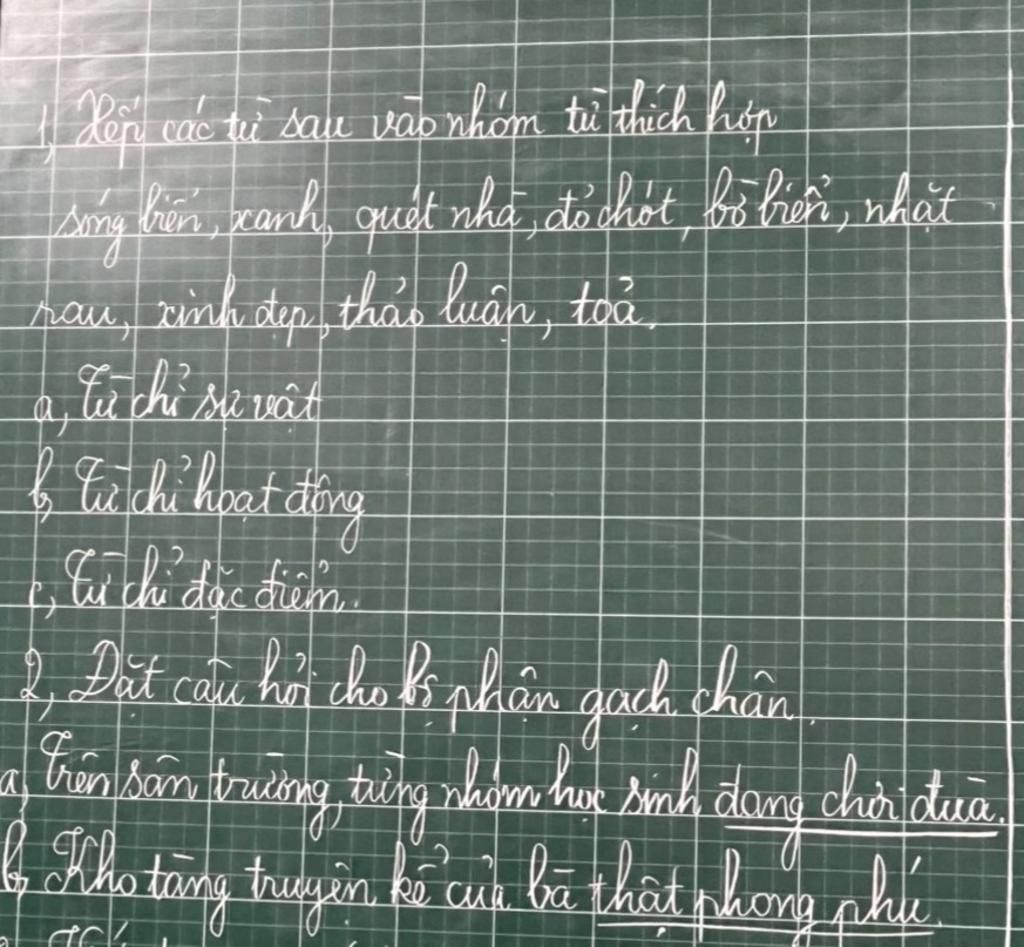 1, Xếp các từ sau vào nhóm từ thích hợp
sóng biển, xanh, quét nhà, đỏ chót, bờ biển, nhặt
rau, xinh đẹp, thảo luận, toả.
a, Từ chỉ sự vật
b, Từ chỉ hoạt động
c, Từ chỉ đặc điểm.
2, Đặt câu hỏi cho bộ phận gạch chân.
a, Trên sân trường, từng nhóm học sinh đang chơi đùa.
b, Kho tàng truyện kể của bà thật phong phú.